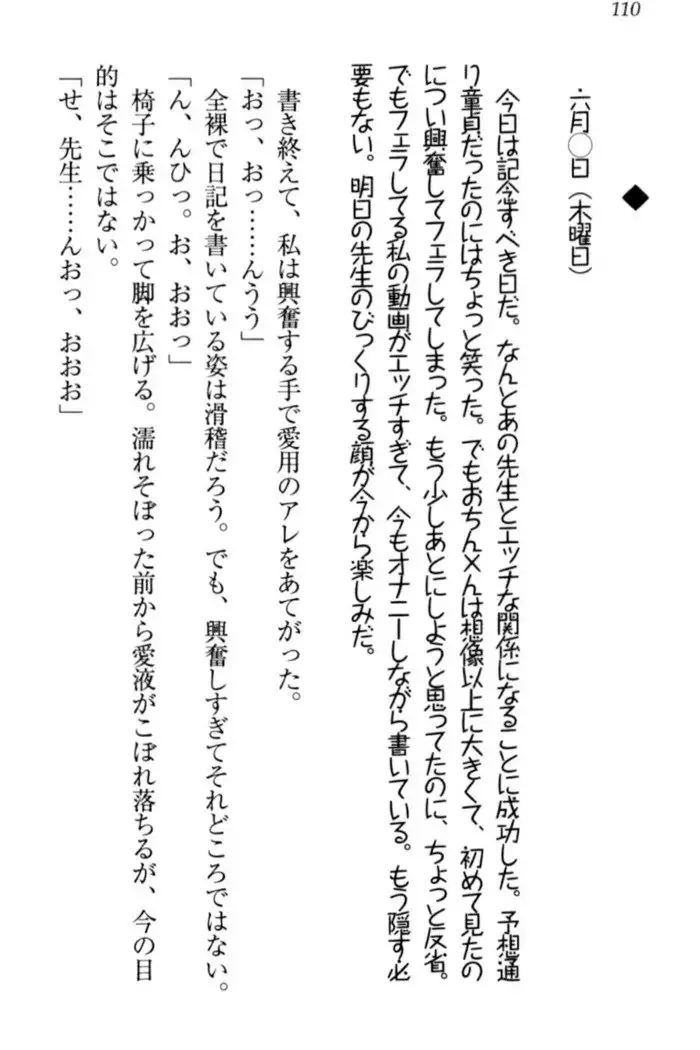 110
◆
・六月〇日（木曜日）
今日は記念すべき日だ。なんとあの先生とエッチな関係になることに成功した。予想通
り童貞だったのにはちょっと笑った。でもおちん×んは想像以上に大きくて、初めて見たの
につい興奮してフェラしてしまった。もう少しあとにしようと思ってたのに、ちょっと反省。
でもフェラしてる私の動画がエッチすぎて、今もオナニーしながら書いている。もう隠す必
要もない。明日の先生のびっくりする顔が今から楽しみだ。
書き終えて、私は興奮する手で愛用のアレをあてがった。
「おっ、おっ……んうう」
全裸で日記を書いている姿は滑稽だろう。でも、興奮しすぎてそれどころではない。
「ん、んひっ。お、おおっ」
椅子に乗っかって脚を広げる。濡れそぼった前から愛液がこぼれ落ちるが、今の目
的はそこではない。
「せ、先生……んおっ、おおお」